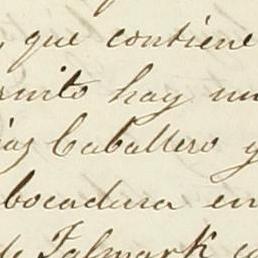 , que contiene
rmito hay un
ias Caballero y
bocadura en
de Falmark co